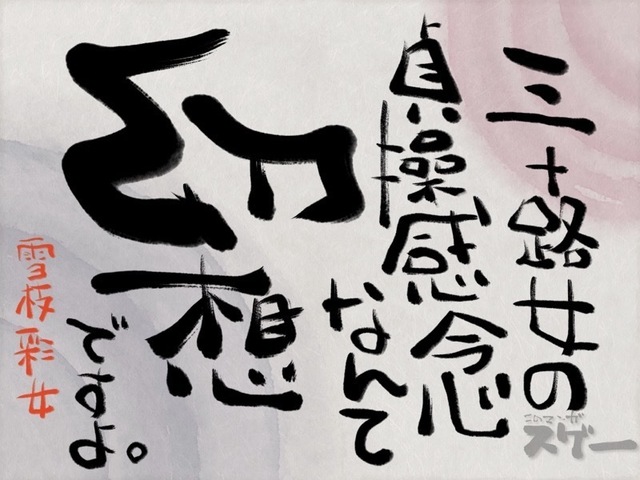 三十路女の
貞操感念
なんて
幻想
ですよ。
雪枝彩女
このマンガ
スゲー